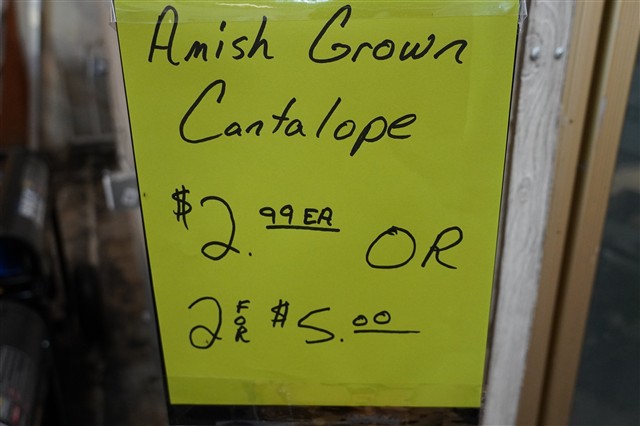 Amish Grown
Cantalope
$2.99 EA OR
2 FOR $5.00